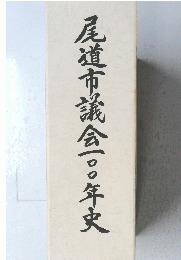 尾道市議会一〇〇年史